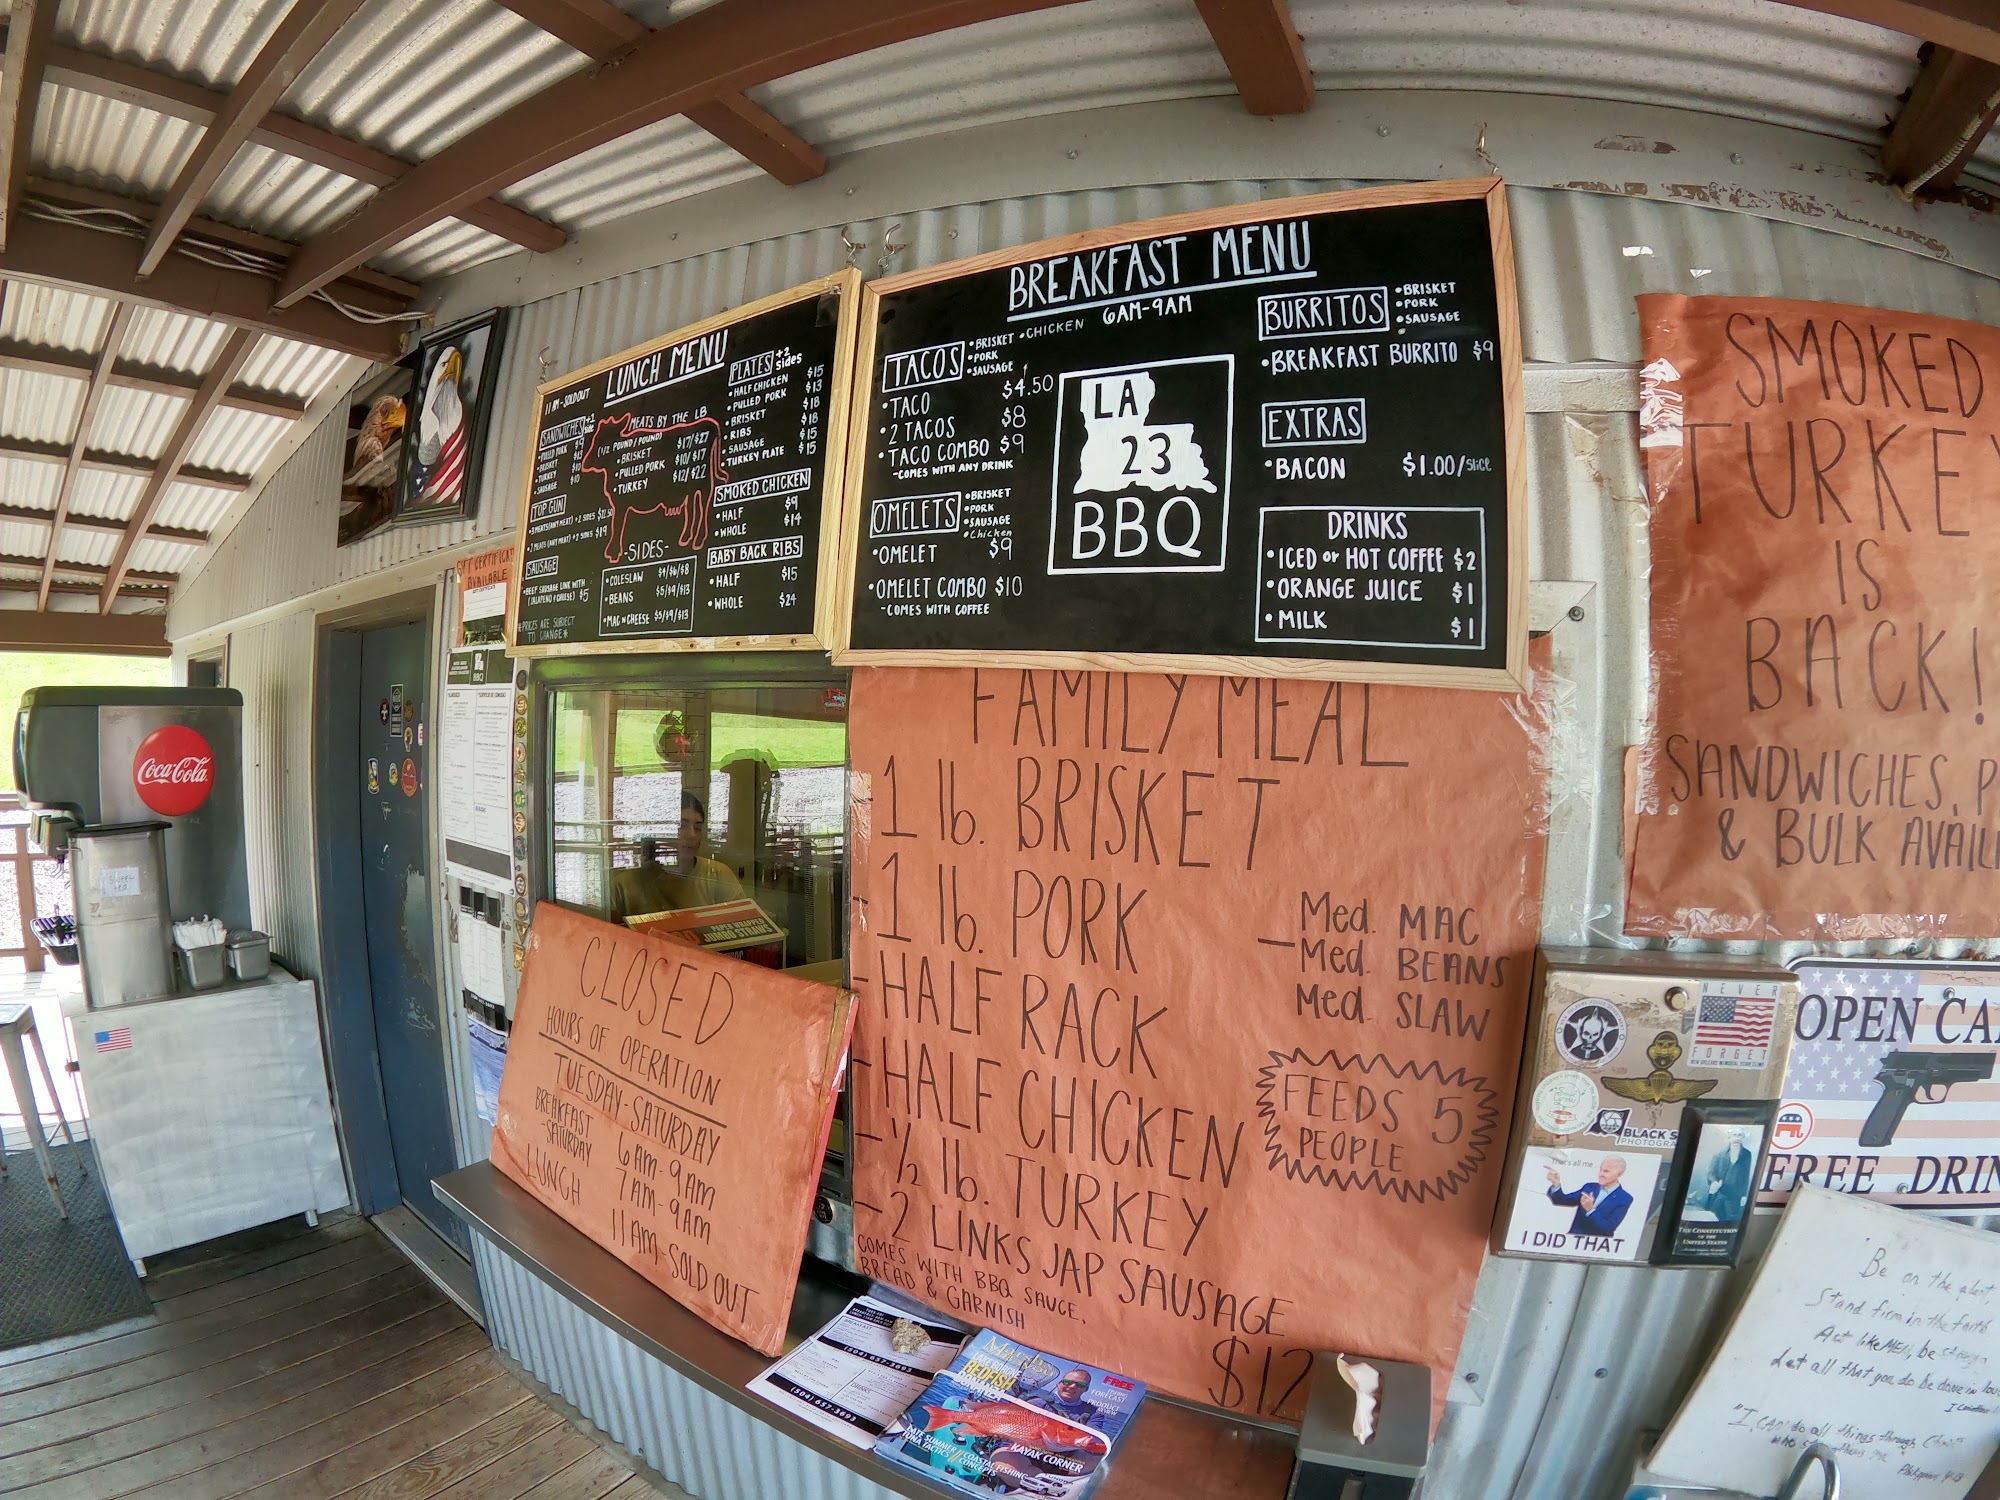 LUNCH MENU
11 AM-SOLDOUT
SANDWICHES +2 side
• PULLED PORK $9
• BRISKET $13
• TURKEY $10
• SAUSAGE $10
TOP GUN
• 3 MEATS (ANY MEAT) + 2 SIDES $22.50
• 2 MEATS (ANY MEAT) + 2 SIDES $19
SAUSAGE
• BEEF SAUSAGE LINK WITH
(JALAPENO & CHEESE) $5
*PRICES ARE SUBJECT
TO CHANGE*
MEATS BY THE LB
(1/2 POUND/POUND)
• BRISKET $17/$27
• PULLED PORK $10/$17
• TURKEY $12/$22
-SIDES-
• COLESLAW $4/$6/$8
• BEANS $5/$9/$13
• MAC N CHEESE $5/$9/$13
PLATES +2 sides
• HALF CHICKEN $15
• PULLED PORK $13
• BRISKET $18
• RIBS $18
• SAUSAGE $15
• TURKEY PLATE $15
SMOKED CHICKEN
• HALF $9
• WHOLE $14
BABY BACK RIBS
• HALF $15
• WHOLE $24
BREAKFAST MENU
6AM-9AM
TACOS
• BRISKET • CHICKEN
• PORK
• SAUSAGE
• TACO $4.50
• 2 TACOS $8
• TACO COMBO $9
-COMES WITH ANY DRINK
OMELETS
• BRISKET
• PORK
• SAUSAGE
• Chicken
• OMELET $9
• OMELET COMBO $10
-COMES WITH COFFEE
LA
23
BBQ
BURRITOS
• BRISKET
• PORK
• SAUSAGE
• BREAKFAST BURRITO $9
EXTRAS
• BACON $1.00/slice
DRINKS
• ICED or HOT COFFEE $2
• ORANGE JUICE $1
• MILK $1
SMOKED
TURKEY
IS
BACK!
SANDWICHES, P
& BULK AVAIL
FAMILY MEAL
- 1 lb. BRISKET
- 1 lb. PORK
- HALF RACK
- HALF CHICKEN
- ½ lb. TURKEY
- 2 LINKS JAP SAUSAGE
COMES WITH BBQ SAUCE,
BREAD & GARNISH
$12
Med. MAC
- Med. BEANS
Med. SLAW
FEEDS 5
PEOPLE
CLOSED
HOURS OF OPERATION
TUESDAY-SATURDAY
BREAKFAST 6AM-9AM
-SATURDAY 7AM-9AM
LUNCH 11AM-SOLD OUT
Coca-Cola
GIFT CERTIFICATES
AVAILABLE
BBQ
PAPER WRAPPED
JUMBO STRAWS
(504) 657-3693
(504) 657-3693
REDFISH
FREE
LATE SUMMER
TUNA TACTICS
COASTAL FISHING
CONCEPTS
KAYAK CORNER
NEVER
FORGET
BLACK S
PHOTOGRA
That's all me
I DID THAT
THE CONSTITUTION
OF THE
UNITED STATES
OPEN CA
FREE DRIN
Be on the alert,
Stand firm in the faith
Act like MEN, be strong
Let all that you do be done in love
"I CAN do all things through Christ
who strengthens me